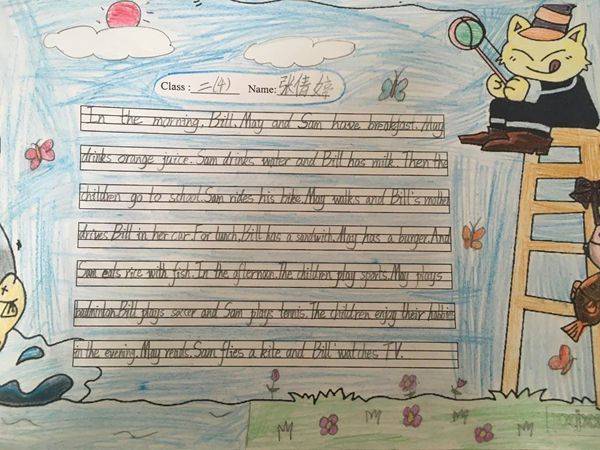 Class: 二(4) Name: 张倩婷
In the morning. Bill. May and Sam have breakfast. May
drinks orange juice. Sam drinks water and Bill has milk. Then the
children go to school. Sam rides his bike. May walks and Bill's mother
drives Bill in her car. For lunch. Bill has a sandwich. May has a burger. And
Sam eats rice with fish. In the afternoon. The children play sports. May plays
badminton. Bill plays soccer and Sam plays tennis. The children enjoy their hobbies
in the evening. May reads. Sam flies a kite and Bill watches TV.